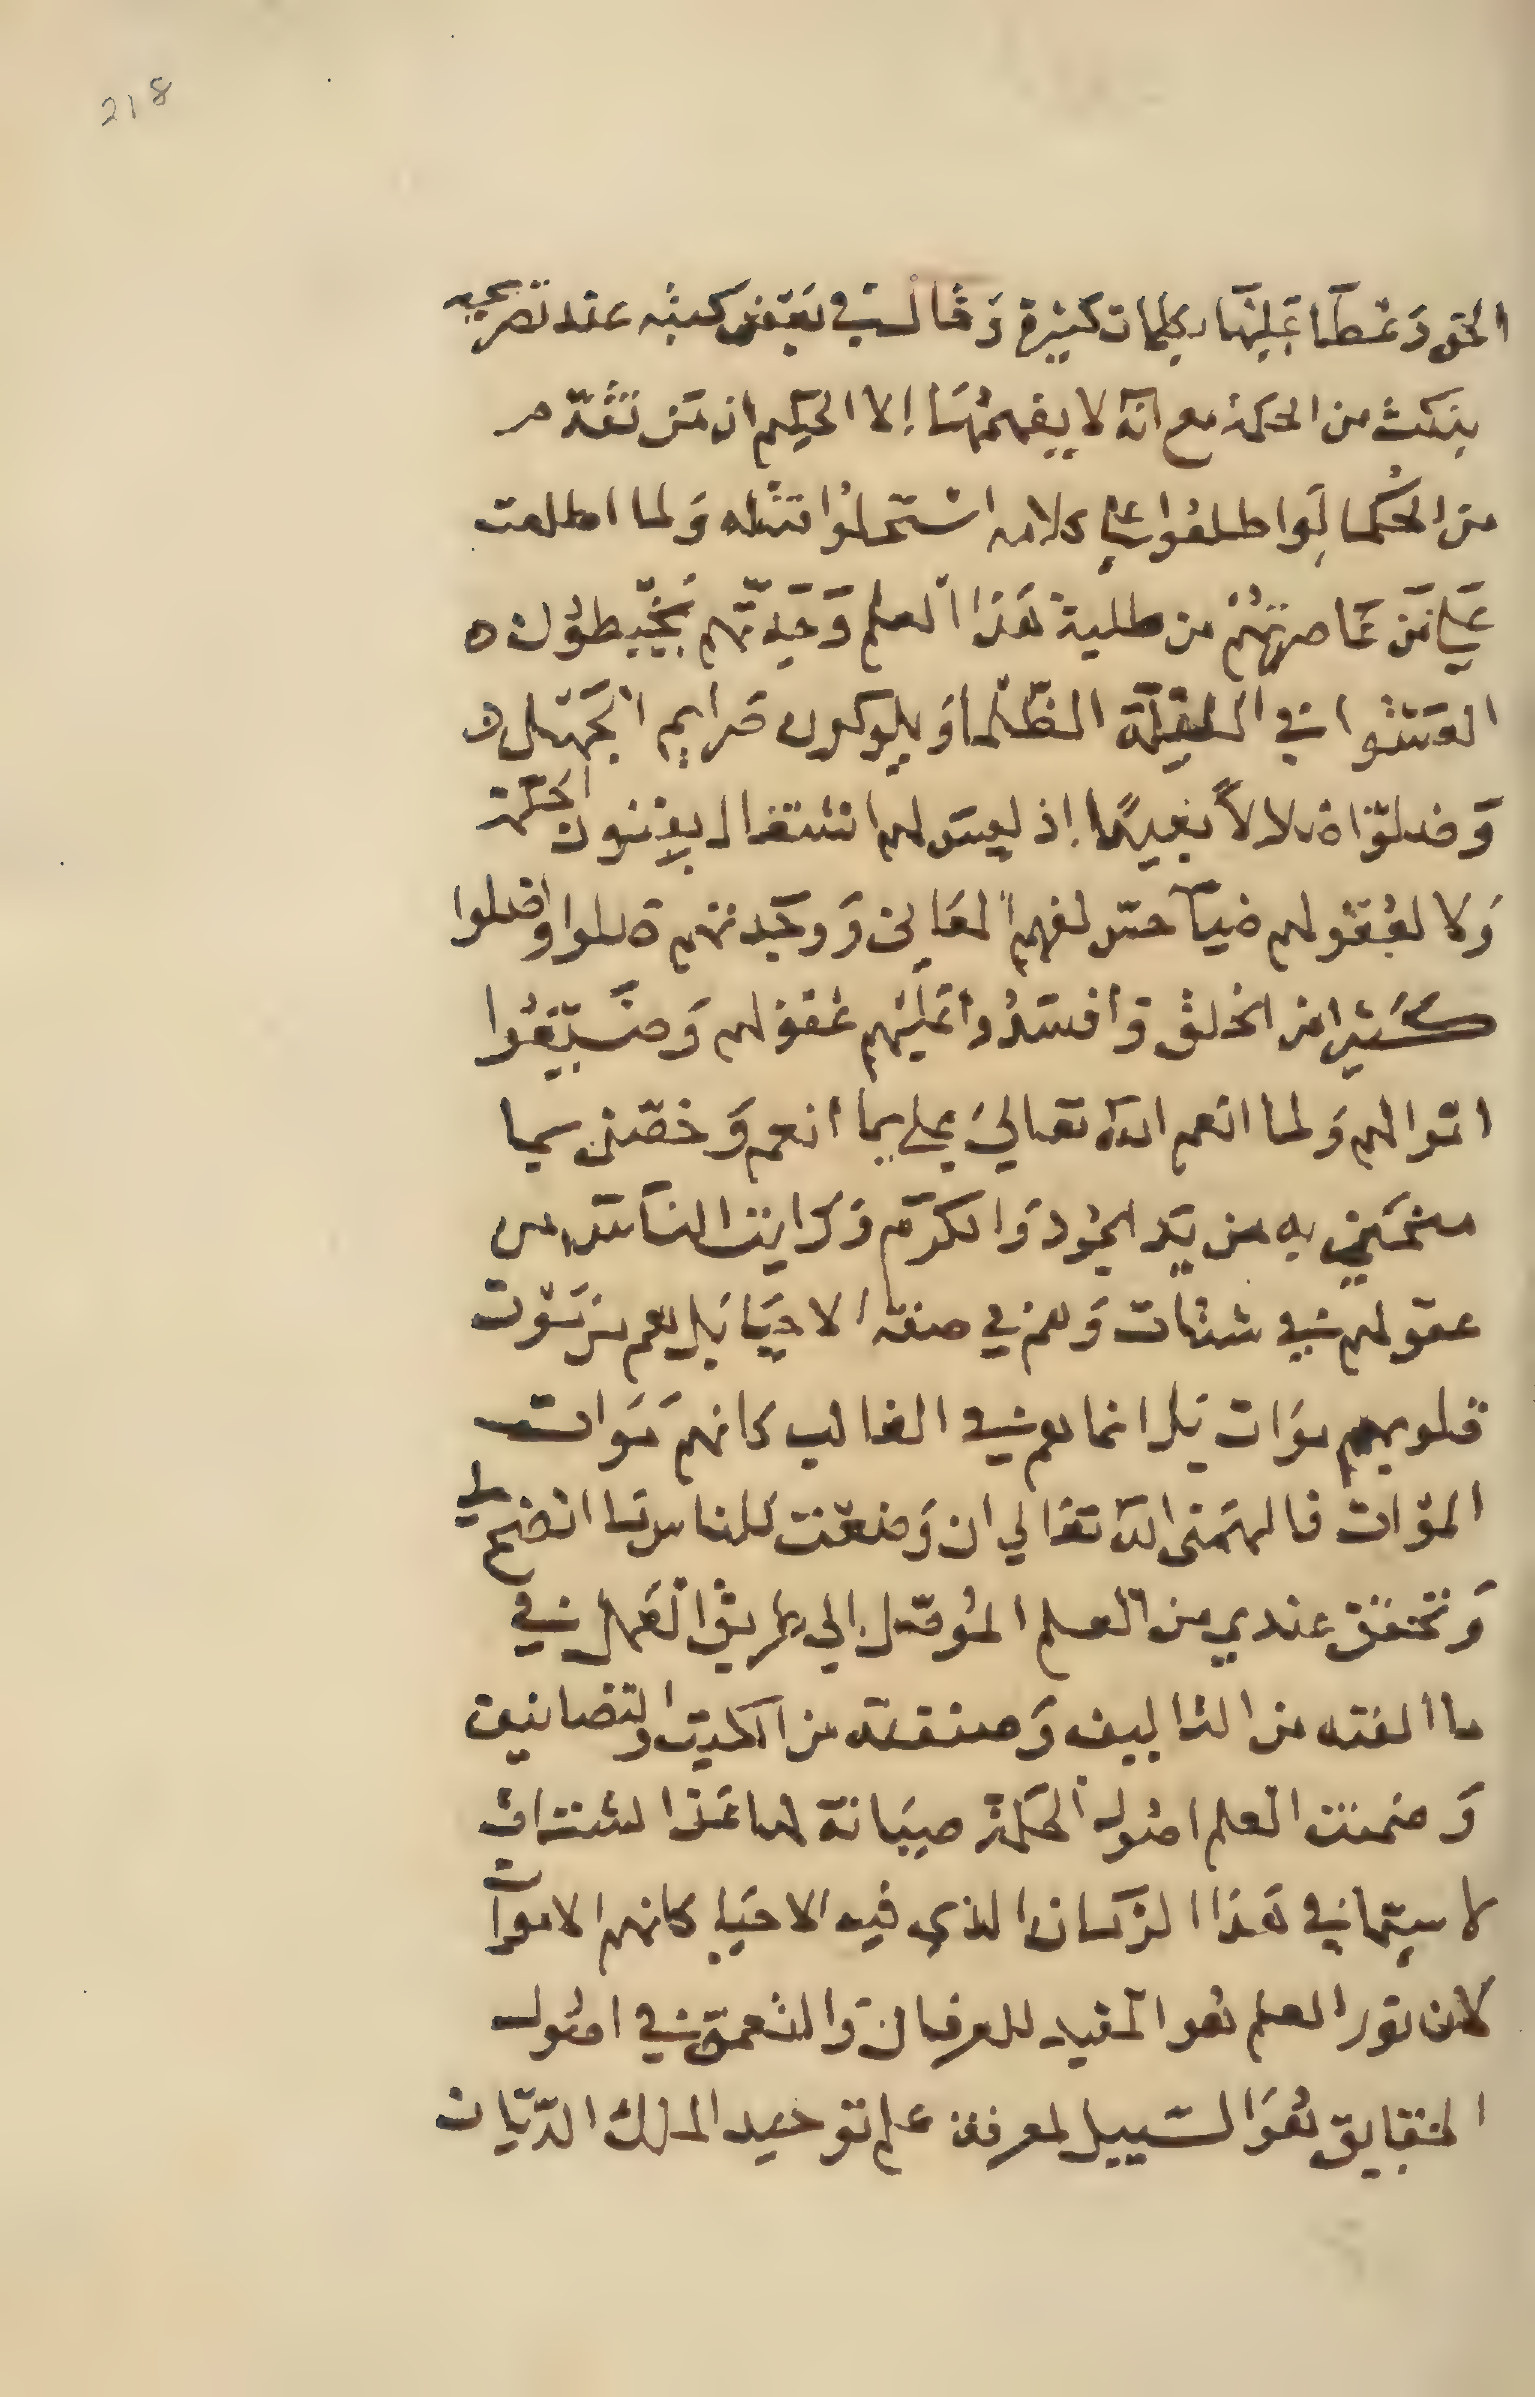 218
الحق وغطا عليها بكلمات كثيرة وقال في بعض كتبه عند تصريحه
بنكث من الحكمة مع انه لا يفهمها إلا الحكيم ان من تقدم
من الحكما لوا طلعوا علي كلامه استحلوا قتله ولما اطلعت
علي من عاصرتهم من طلبة هذا العلم وجدتهم يخبطون
العشوا في الليلة الظلما ويلوكون صرايم الجهل
وضلوا ضلالاً بعيدًا إذ ليس لهم اشتغال بفنون الحكمة
ولا لعقولهم ضيآ حتى لفهم المعانى ووجدتهم ضلوا واضلوا
كثيرا من الخلق وافسدوا عليهم عقولهم وضيعوا
اموالهم ولما انعم الله تعالي علي بما انعم وخصنى بما
منحني به من يد الجود والكرم ورايت الناس من
عقولهم في شتات وهم في صفة الاحيا بل هم من موت
قلوبهم موات بل انما هم في الغالب كانهم موات
الموات فالهمنى الله تعالي ان وضعت للناس ما اتضح لي
وتحقق عندي من العلم الموصل إلي طريق العمل في
ما الفته من التاليف وصنفته من الكتب والتصانيف
وضمنت العلم اصول الحكمة صيانة لها عند الشتات
لا سيما في هذا الزمان الذي فيه الاحيا كانهم الاموات
لان نور العلم هو المفيد للعرفان والتعمق في اصول
الحقايق هو السبيل لمعرفة علم توحيد الملك الديان